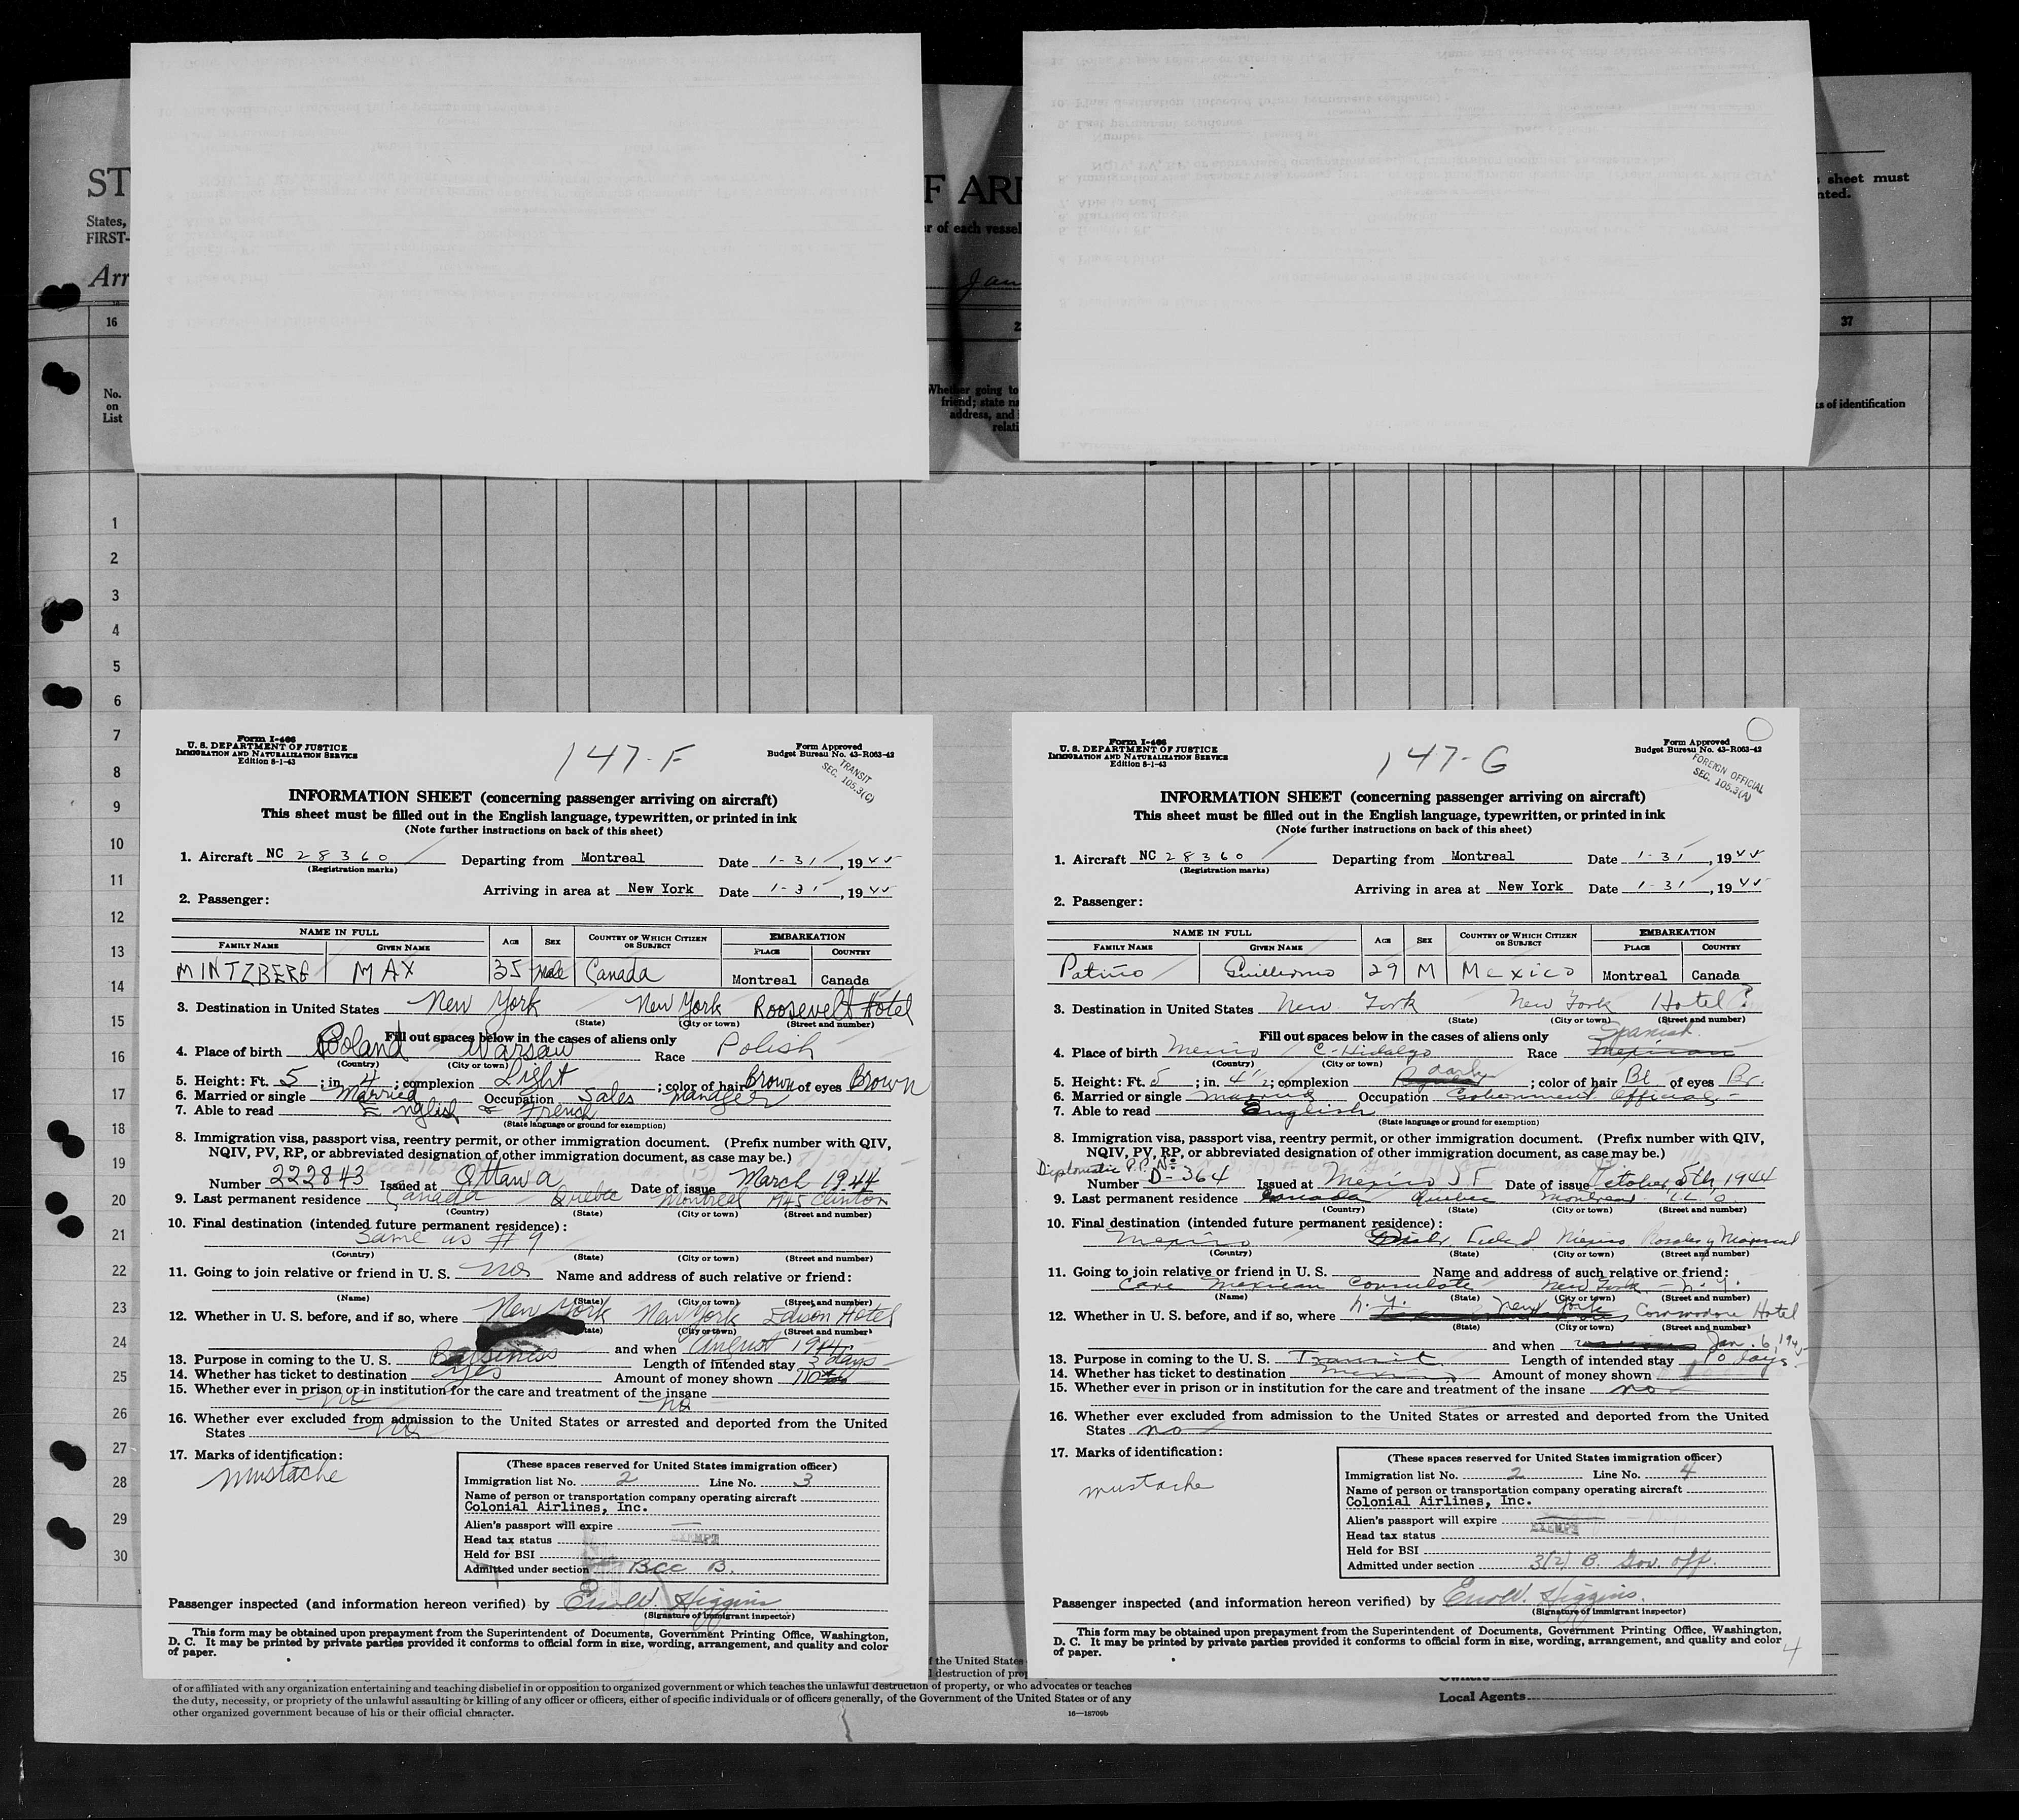 ST
F ARR
States,
FIRST-
r of each vessel
sheet must
nted.
Arr
Jan
16
37
No.
on
List
Whether going to
friend; state
address, and
relati
s of identification
1
2
3
4
5
6
7
8
9
10
11
12
13
14
15
16
17
18
19
20
21
22
23
24
25
26
27
28
29
30
Form I-466
U. S. DEPARTMENT OF JUSTICE
IMMIGRATION AND NATURALIZATION SERVICE
Edition 8-1-43
147-F
Form Approved
Budget Bureau No. 43-R063-42
TRANSIT
SEC. 105.3(C)
INFORMATION SHEET (concerning passenger arriving on aircraft)
This sheet must be filled out in the English language, typewritten, or printed in ink
(Note further instructions on back of this sheet)
1. Aircraft NC 28360 Departing from Montreal Date 1-31, 1945
(Registration marks)
Arriving in area at New York Date 1-31, 1945
2. Passenger:
NAME IN FULL AGE SEX COUNTRY OF WHICH CITIZEN OR SUBJECT EMBARKATION
FAMILY NAME GIVEN NAME PLACE COUNTRY
MINTZBERG MAX 35 Male Canada Montreal Canada
3. Destination in United States New York New York Roosevelt Hotel
(State) (City or town) (Street and number)
Fill out spaces below in the cases of aliens only
4. Place of birth Poland Warsaw Race Polish
(Country) (City or town)
5. Height: Ft. 5; in. 4; complexion Light; color of hair Brown of eyes Brown
6. Married or single Married Occupation Sales Manager
7. Able to read English & French
(State language or ground for exemption)
8. Immigration visa, passport visa, reentry permit, or other immigration document. (Prefix number with QIV,
NQIV, PV, RP, or abbreviated designation of other immigration document, as case may be.)
Number 222843 Issued at Ottawa Date of issue March 1944
9. Last permanent residence Canada Quebec Montreal Clinton
(Country) (State) (City or town) (Street and number)
10. Final destination (intended future permanent residence):
Same as #9
(Country) (State) (City or town) (Street and number)
11. Going to join relative or friend in U. S. no Name and address of such relative or friend:
(Name) (State) (City or town) (Street and number)
12. Whether in U. S. before, and if so, where New York New York Edison Hotel
(State) (City or town) (Street and number)
and when August 1944
13. Purpose in coming to the U. S. Business Length of intended stay 3 days
14. Whether has ticket to destination Yes Amount of money shown 110
15. Whether ever in prison or in institution for the care and treatment of the insane
no no
16. Whether ever excluded from admission to the United States or arrested and deported from the United
States no
17. Marks of identification:
mustache
(These spaces reserved for United States immigration officer)
Immigration list No. 2 Line No. 3
Name of person or transportation company operating aircraft
Colonial Airlines, Inc.
Alien's passport will expire
Head tax status EXEMPT
Held for BSI
Admitted under section BCC B.
Passenger inspected (and information hereon verified) by Higgins
(Signature of immigrant inspector)
This form may be obtained upon prepayment from the Superintendent of Documents, Government Printing Office, Washington,
D. C. It may be printed by private parties provided it conforms to official form in size, wording, arrangement, and quality and color
of paper.
Form I-466
U. S. DEPARTMENT OF JUSTICE
IMMIGRATION AND NATURALIZATION SERVICE
Edition 8-1-43
147-G
Form Approved
Budget Bureau No. 43-R063-42
FOREIGN OFFICIAL
SEC. 105.3(A)
INFORMATION SHEET (concerning passenger arriving on aircraft)
This sheet must be filled out in the English language, typewritten, or printed in ink
(Note further instructions on back of this sheet)
1. Aircraft NC 28360 Departing from Montreal Date 1-31, 1945
(Registration marks)
Arriving in area at New York Date 1-31, 1945
2. Passenger:
NAME IN FULL AGE SEX COUNTRY OF WHICH CITIZEN OR SUBJECT EMBARKATION
FAMILY NAME GIVEN NAME PLACE COUNTRY
Patiño Guillermo 29 M Mexico Montreal Canada
3. Destination in United States New York New York Hotel ?
(State) (City or town) (Street and number)
Fill out spaces below in the cases of aliens only
Spanish
4. Place of birth Mexico C-Hidalgo Race Mexican
(Country) (City or town)
5. Height: Ft. 5; in. 4 1/2; complexion dark; color of hair Bl. of eyes Br.
6. Married or single married Occupation Government Official
7. Able to read English
(State language or ground for exemption)
8. Immigration visa, passport visa, reentry permit, or other immigration document. (Prefix number with QIV,
NQIV, PV, RP, or abbreviated designation of other immigration document, as case may be.)
Diplomatic P.P. No
Number D-364 Issued at Mexico Date of issue October 5th, 1944
9. Last permanent residence Canada Quebec Montreal
(Country) (State) (City or town) (Street and number)
10. Final destination (intended future permanent residence):
Mexico Mexico Rosales y
(Country) (State) (City or town) (Street and number)
11. Going to join relative or friend in U. S. Name and address of such relative or friend:
Care Mexican Consulate New York - N. Y.
(Name) (State) (City or town) (Street and number)
12. Whether in U. S. before, and if so, where N. Y. New York Commodore Hotel
(State) (City or town) (Street and number)
and when Jan. 6, 1945
13. Purpose in coming to the U. S. Transit Length of intended stay 10 days
14. Whether has ticket to destination Mexico Amount of money shown
15. Whether ever in prison or in institution for the care and treatment of the insane no
16. Whether ever excluded from admission to the United States or arrested and deported from the United
States no
17. Marks of identification:
mustache
(These spaces reserved for United States immigration officer)
Immigration list No. 2 Line No. 4
Name of person or transportation company operating aircraft
Colonial Airlines, Inc.
Alien's passport will expire
Head tax status EXEMPT
Held for BSI
Admitted under section 3(2) B. Gov. off.
Passenger inspected (and information hereon verified) by Higgins.
(Signature of immigrant inspector)
This form may be obtained upon prepayment from the Superintendent of Documents, Government Printing Office, Washington,
D. C. It may be printed by private parties provided it conforms to official form in size, wording, arrangement, and quality and color
of paper.
4
f the United States
l destruction of prop
of or affiliated with any organization entertaining and teaching disbelief in or opposition to organized government or which teaches the unlawful destruction of property, or who advocates or teaches
the duty, necessity, or propriety of the unlawful assaulting or killing of any officer or officers, either of specific individuals or of officers generally, of the Government of the United States or of any
other organized government because of his or their official character.
16—18709b
Owners
Local Agents